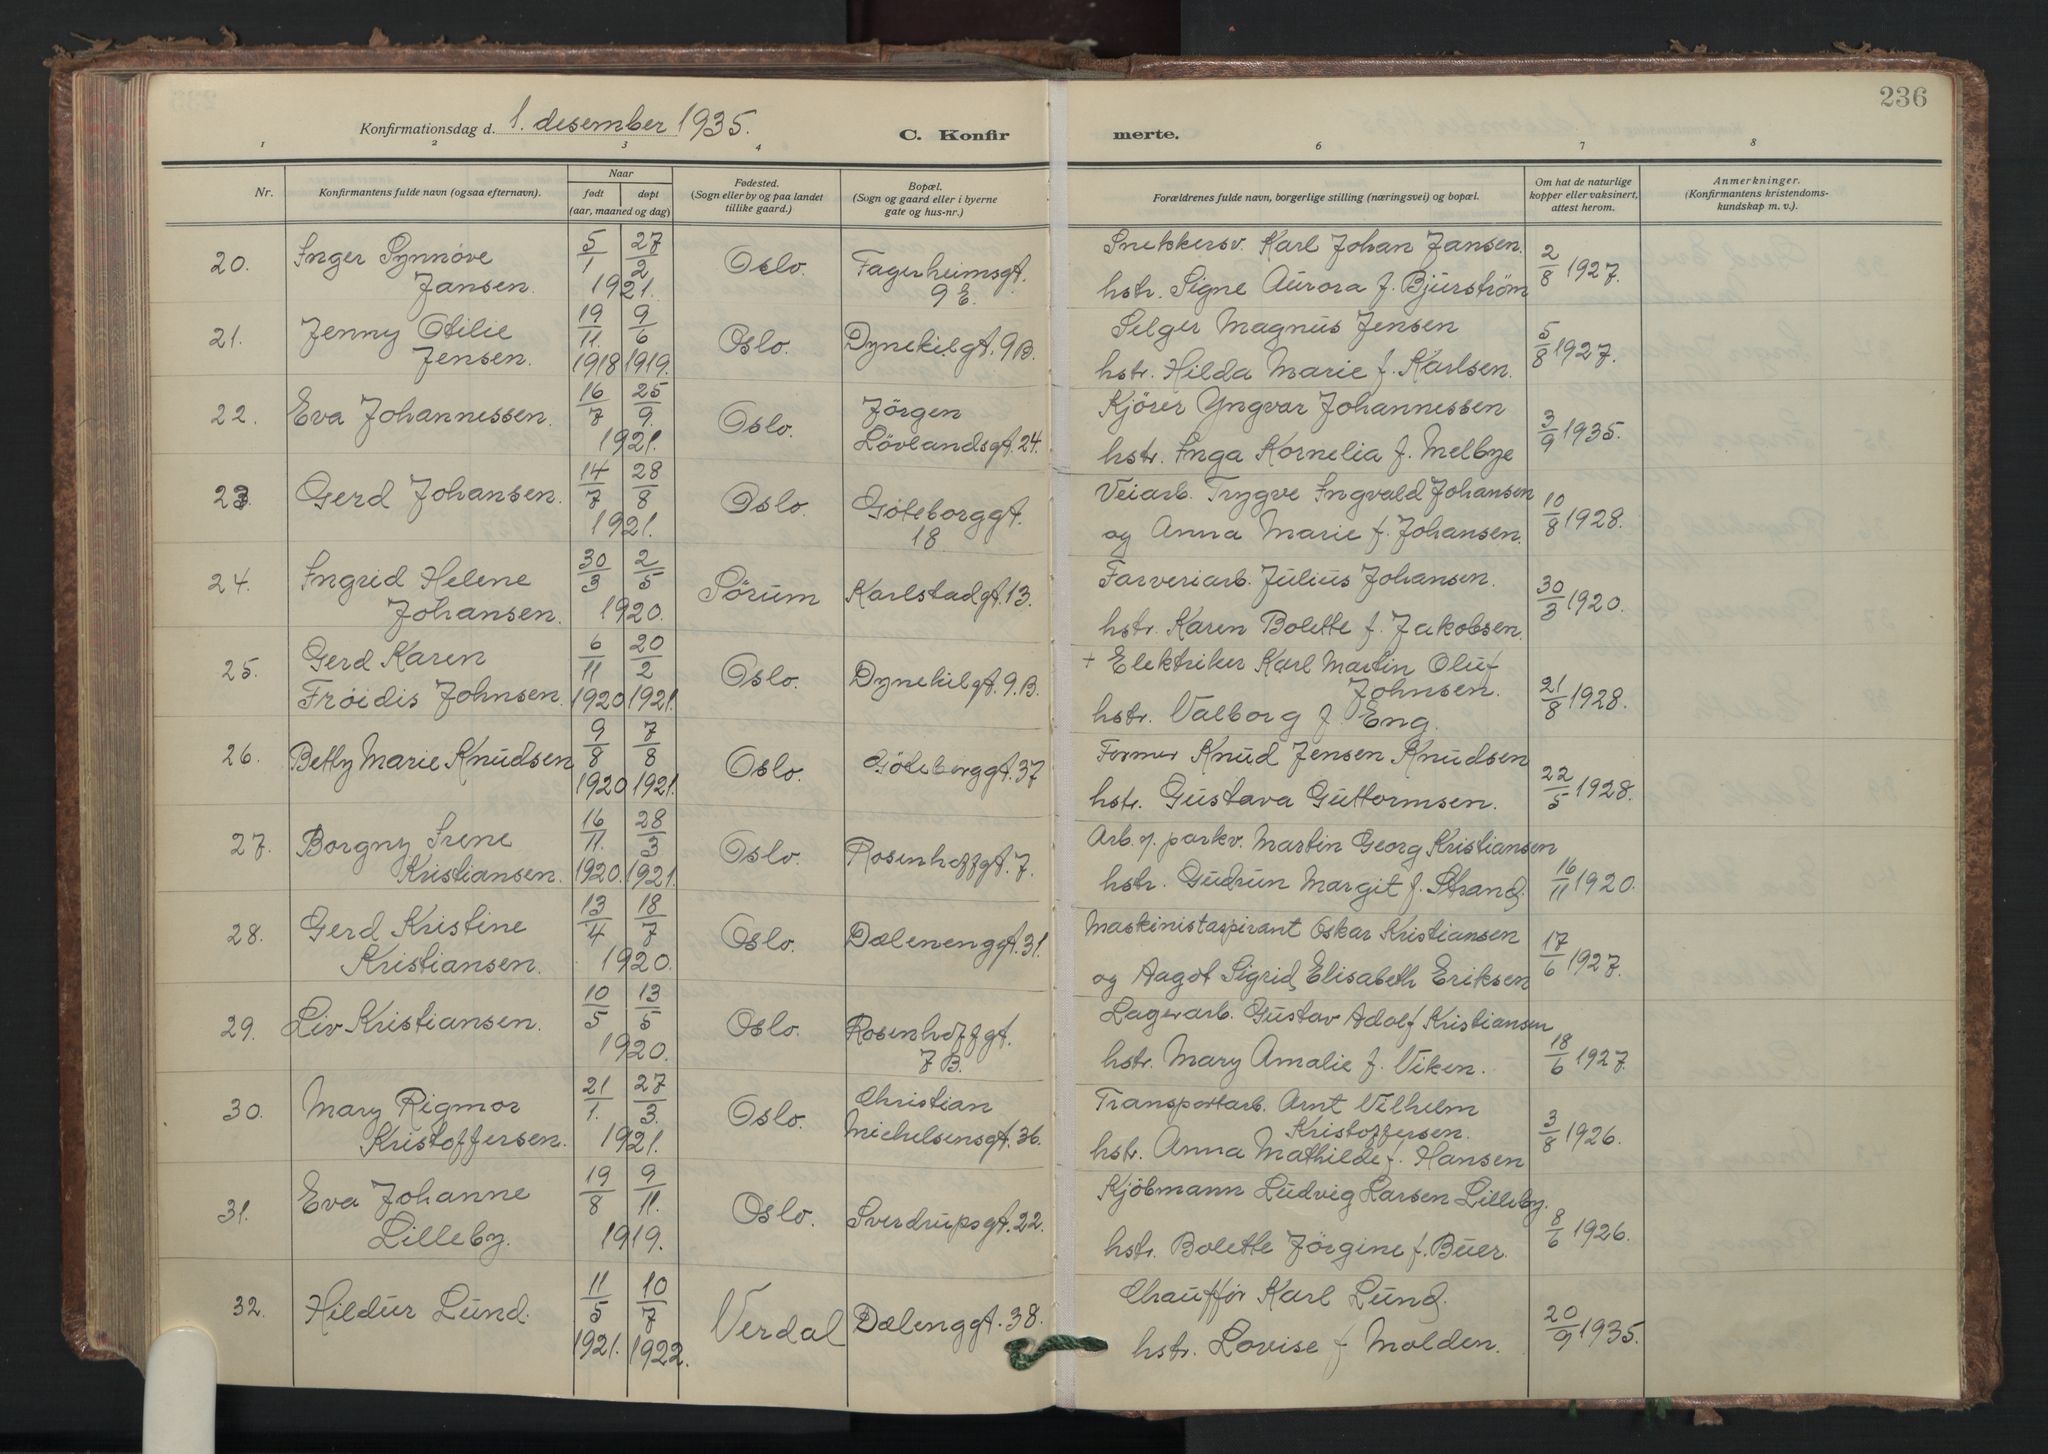 236
Konfirmationsdag d. 1. desember 1935.
C. Konfir merte.
1 2 3 4 6 7 8
Nr.
Konfirmantens fulde navn (ogsaa efternavn).
Naar
født døpt
(aar, maaned og dag)
Fødested.
(Sogn eller by og paa landet
tillike gaard.)
Bopæl.
(Sogn og gaard eller i byerne
gate og hus-nr.)
Forældrenes fulde navn, borgerlige stilling (næringsvei) og bopæl.
Om hat de naturlige
kopper eller vaksinert,
attest herom.
Anmerkninger.
(Konfirmantens kristendoms-
kundskap m. v.).
20. Inger Synnøve
Jansen.
5/1 27/2
1921.
Oslo.
Fagerheimsgt.
9 E.
Snekkersv. Karl Johan Jansen.
hstr. Signe Aurora f. Bjurström
2/8 1927.
21. Jenny Otilie
Jensen.
19/11. 9/6
1918 1919.
Oslo.
Dynekilgt. 9B.
Selger Magnus Jensen
hstr. Hilda Marie f. Karlsen.
5/8 1927.
22. Eva Johannessen.
16/7 25/9.
1921.
Oslo.
Jörgen
Lövlandsgt. 24.
Kjörer Yngvar Johannessen
hstr. Inga Kornelia f. Melbye
3/9 1935.
23. Gerd Johansen.
14/7 28/8
1921.
Oslo.
Göteborggt.
18
Veiarb. Trygve Ingvald Johansen
og Anna Marie f. Johansen.
10/8 1928.
24. Ingrid Helene
Johansen.
30/3 2/5
1920.
Sörum
Karlstadgt. 13.
Farveriarb. Julius Johansen.
hstr. Karen Bolette f. Jakobsen.
30/3 1920.
25. Gerd Karen
Fröidis Johnsen.
6/11 20/2
1920 1921.
Oslo.
Dynekilgt. 9.B.
+ Elektriker Karl Martin Oluf
Johnsen.
hstr. Valborg f. Eng.
21/8 1928.
26. Betty Marie Knudsen
9/8 7/8
1920 1921.
Oslo.
Göteborggt. 37
Former Knud Jensen Knudsen
hstr. Gustava Guttormsen.
22/5 1928.
27. Borgny Irene
Kristiansen.
16/11. 28/3
1920. 1921.
Oslo.
Rosenhoffgt. 7.
Arb. v. parkv. Martin Georg Kristiansen
hstr. Gudrun Margit f. Strand.
16/11 1920.
28. Gerd Kristine
Kristiansen.
13/4 18/7
1920.
Oslo.
Dælenenggt. 31.
Maskinistaspirant Oskar Kristiansen
og Aagot Sigrid Elisabeth Eriksen
17/6 1927.
29. Liv Kristiansen.
10/5 13/5
1920.
Oslo.
Rosenhoffgt.
7 B.
Lagerarb. Gustav Adolf Kristiansen
hstr. Mary Amalie f. Viken.
18/6 1927.
30. Mary Rigmor
Kristoffersen.
21/1. 27/3.
1921.
Oslo.
Christian
Michelsensgt. 36.
Transportarb. Arnt Vilhelm
Kristoffersen.
hstr. Anna Mathilde f. Hansen
3/8 1926.
31. Eva Johanne
Lilleby.
19/8 9/11.
1919.
Oslo.
Sverdrupsgt. 22.
Kjöbmann Ludvig Larsen Lilleby.
hstr. Bolette Jörgine f. Buer.
8/6 1926.
32. Hildur Lund.
11/5 10/7
1921. 1922.
Verdal
Dælenggt. 38.
Chaufför Karl Lund.
hstr. Lovise f Molden.
20/9 1935.